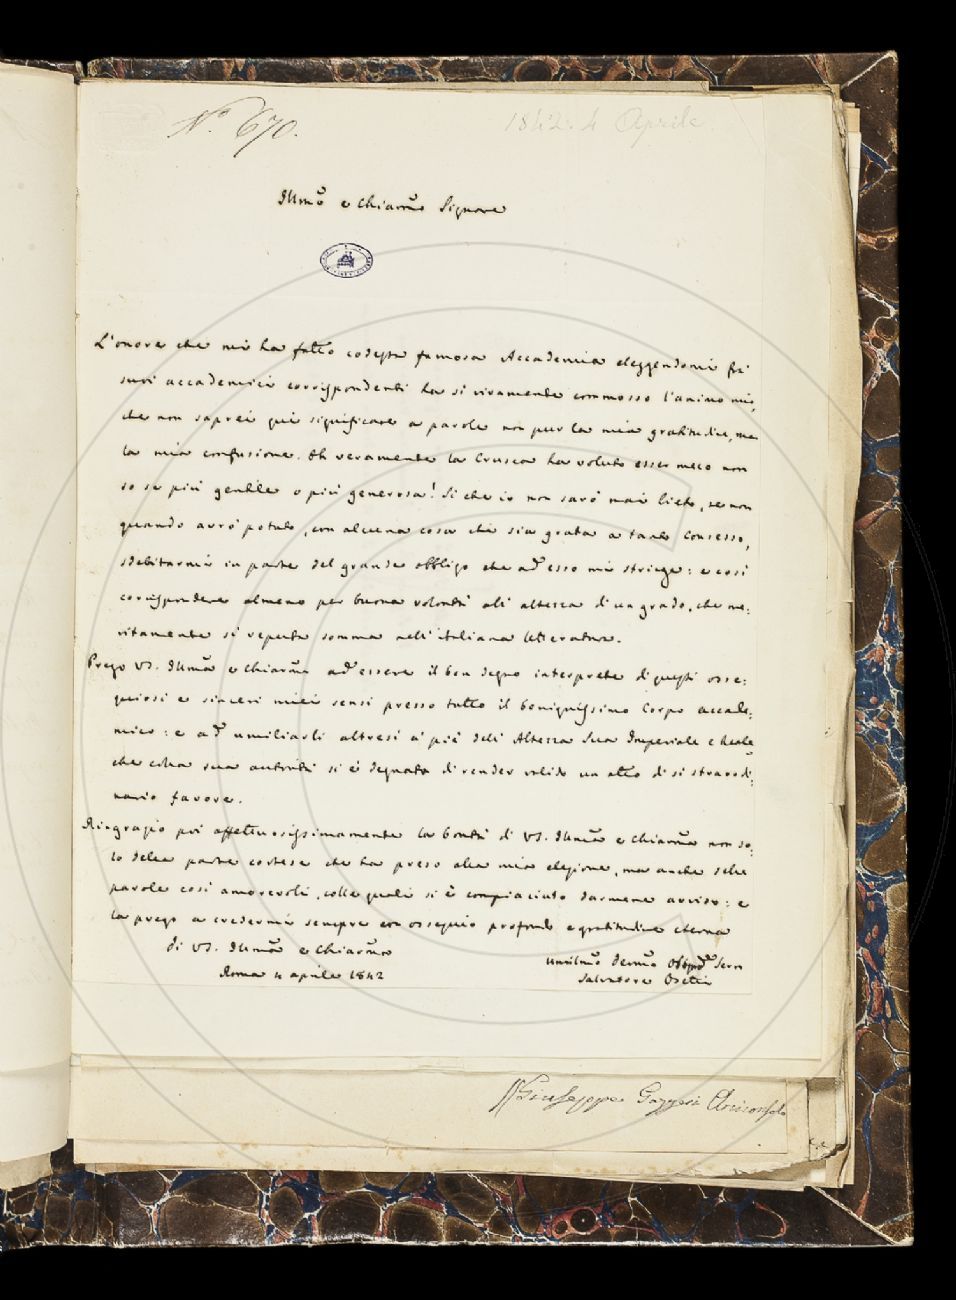 N.º 670.
1842. 4 Aprile
Illmo e Chiarmo Signore
L'onore che mi ha fatto codesta famosa Accademia eleggendomi fra'
suoi accademici corrispondenti ha sì vivamente commosso l'animo mio,
che non saprei qui significare a parole non pur la mia gratitudine, ma
la mia confusione. Oh veramente la Crusca ha voluto esser meco non
so se più gentile o più generosa! Sì che io non sarò mai lieto, se non
quando avrò potuto, con alcuna cosa che sia grata a tanto Consesso,
sdebitarmi in parte del grande obbligo che ad esso mi stringe: e così
corrispondere almeno per buona volontà all'altezza di un grado, che me:
ritamente si reputa sommo nell'italiana letteratura.
Prego VS. Illma e Chiarma ad essere il ben degno interprete di questi osse:
quiosi e sinceri miei sensi presso tutto il benignissimo Corpo accade:
mico: e ad umiliarli altresì a' piè dell'Altezza Sua Imperiale e Reale
che colla sua autorità si è degnata di render valido un atto di sì straordi:
nario favore.
Ringrazio poi affettuosissimamente la bontà di VS. Illma e Chiarma non so:
lo della parte cortese che ha preso alla mia elezione, ma anche delle
parole così amorevoli, colle quali si è compiaciuto darmene avviso: e
la prego a credermi sempre con ossequio profondo e gratitudine eterna
di VS. Illma e Chiarma
Roma 4 aprile 1842
umilmo devmo obbmo serv
Salvatore Betti
Giuseppe Gazzeri Arciconsolo